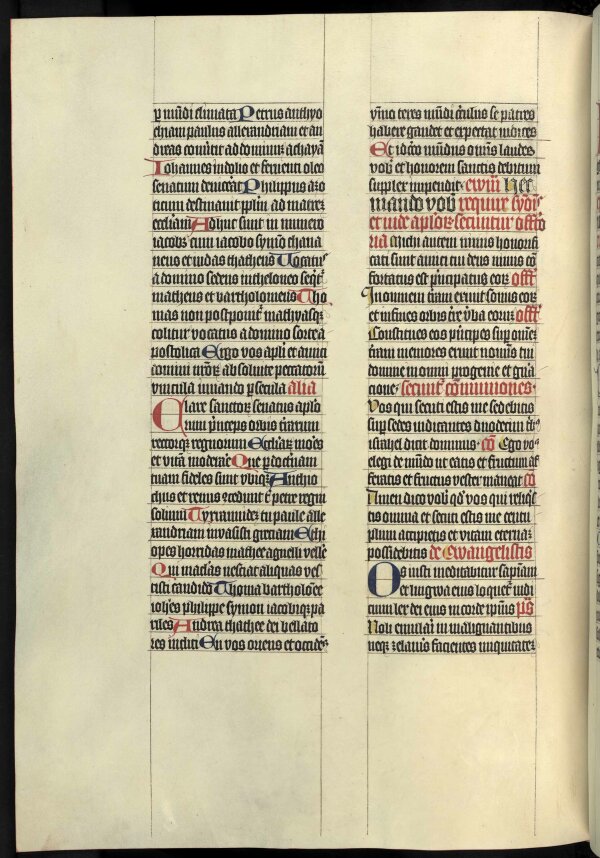 p mūdi climata Petrus anthyo
chiam paulus allexandriam et an
dreas couūtit ad dominū achayā
Iohannes in dolio et feruenti oleo
senatum deuiceāt Philippus azo
ticum destinauit pplm ad matrē
eccliam Adhuc sunt in numero
iacob9 cum iacobo symō chana
neus et iudas thatheus Uocatus
a domino sedens in theloneo seqt̄
matheus et bartholomeus Tho
mas non postponit̄ mathyasq;
colitur vocatus a domino sorte a
postolica Ergo vos apli et amici
domini nrōꝝ absoluite peccatorū
vincula iuuando p secula alia
Clare sanctoꝝ senatus aplo
rum p̄nceps orbis terrarum
rectorq; regnorum Ecclaꝝ mores
et vitā moderare Que p doctnam
tuam fideles sunt vbiq; Anthio
chus et remus ꝯcedunt t̄ petre regni
solium Tyrannidē tu paule alle
xandriam inuasisti greciam Ethi
opes horridas mathee agnelli vellē
Qui maclas nesciat aliquas ves
tisti candido Thoma bartholomee
iohēs philippe symon iacobiq; pa
riles Andrea thathee dei bellato
res incliti En vos oriens et occidēs
ymmo teres mūdi circulus se patres
habere gaudet et expectat iudices
Et idcō mundus om̄is laudes
vob et honorem sanctis debitum
supplex impendit ewm̄ Hec
mando vob require
et inde aploꝝ Secuntur offto
ria Michi autem nimis honorifi
cati sunt amici tui deus nimis cō
fortatus est p̄ncipatus eoꝝ offt̄
In omnem terram exiuit sonus eoꝝ
et in fines orbis tre v̄ba eoruꝫ offt̄
Constitues eos p̄ncipes sup omnē
terram memores erunt nominis tui
domine in omni progenie et gn̄a
cione Secunt̄ cōmuniones
Vos qui secuti estis me sedebitis
sup sedes iudicantes duodecim tb9
israhel dicit dominus cō Ego vos
elegi de mūdo ut eatis et fructum af
feratis et fructus vester maneat cō
Amen dico vob qd vos qui reliqs
tis omnia et secuti estis me centu
plum accipietis et vitam eternaꝫ
possidebitis de Ewangelistis
Os iusti meditabitur sapiam
et lingwa eius loquet̄ iudi
cium lex dei eius in corde ipius ps
Noli emulari in malignantibus
neq; zelaueris facientes iniquitatē